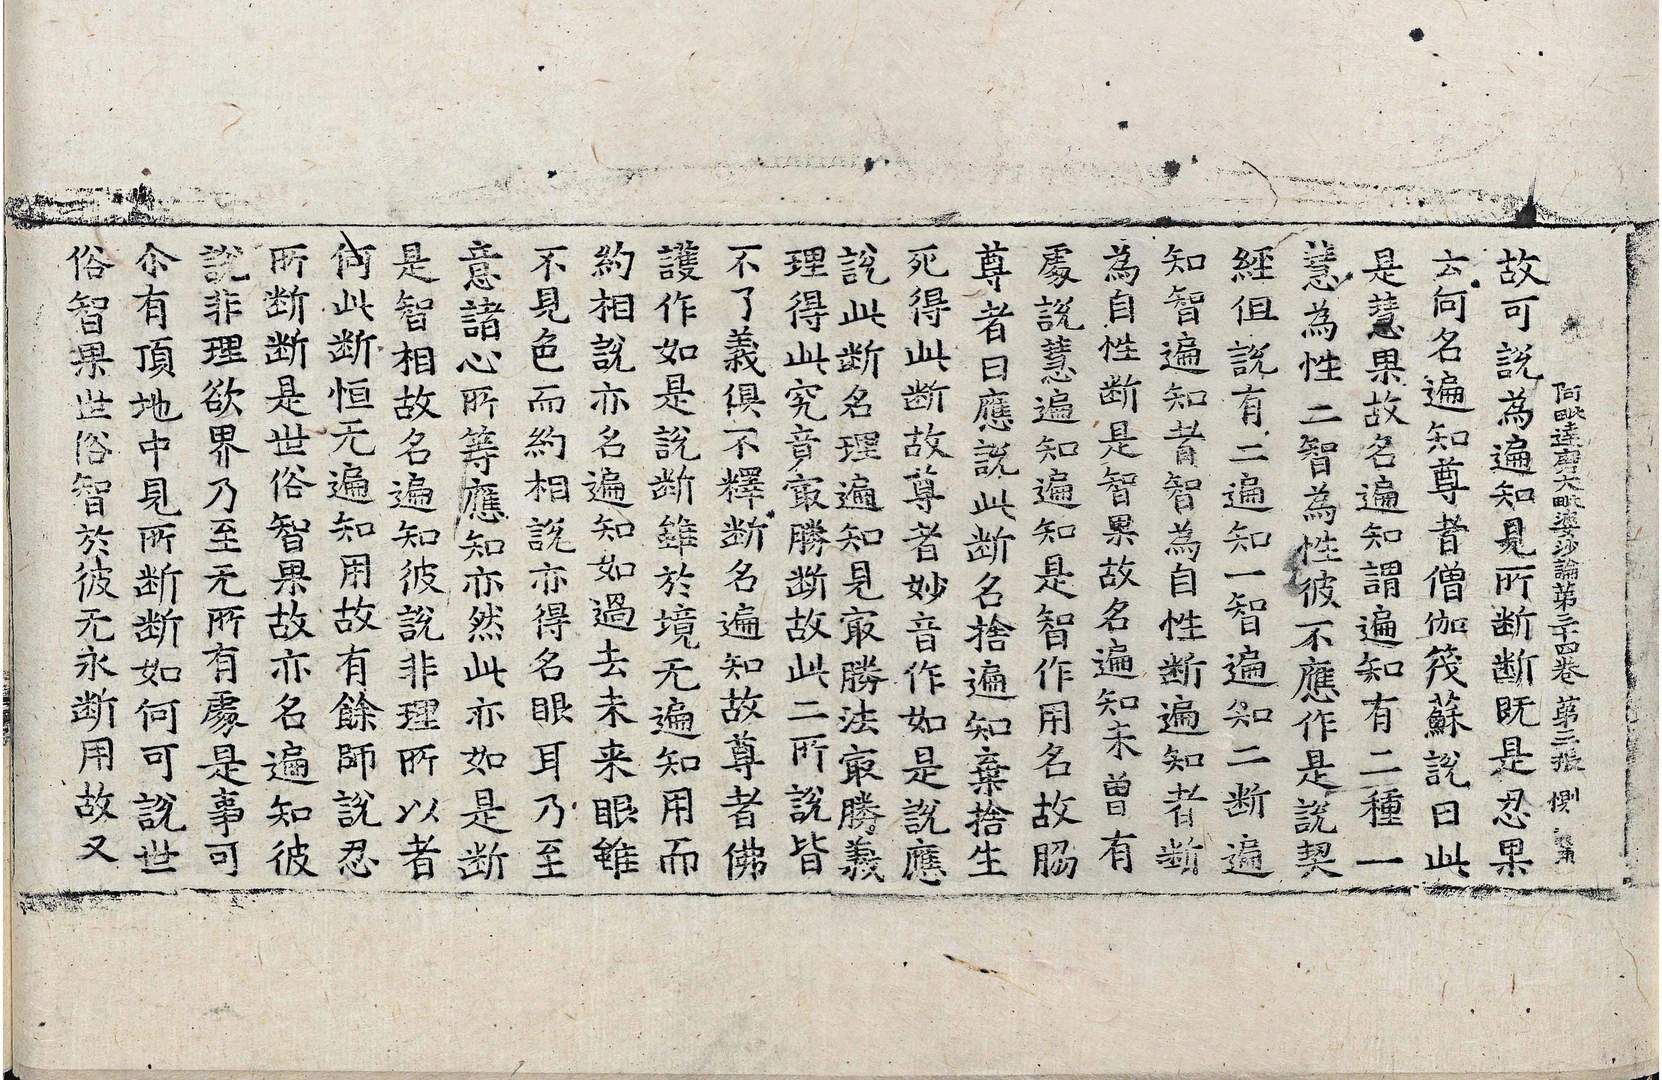 阿毗達磨大毗婆沙論第三十四卷　第三張　惻
故可說為遍知見所断断既是忍果
云何名遍知尊者僧伽筏蘇說曰此
是慧果故名遍知謂遍知有二種一
慧為性二智為性彼不應作是說契
經但說有二遍知一智遍知二断遍
知智遍知者智為自性断遍知者断
為自性断是智果故名遍知未曾有
處說慧遍知遍知是智作用名故脇
尊者曰應說此断名捨遍知棄捨生
死得此断故尊者妙音作如是說應
說此断名理遍知見㝡勝法㝡勝義
理得此究竟㝡勝断故此二所說皆
不了義俱不釋断名遍知故尊者佛
護作如是說断雖於境无遍知用而
約相說亦名遍知如過去未来眼雖
不見色而約相說亦得名眼耳乃至
意諸心所等應知亦然此亦如是断
是智相故名遍知彼說非理所以者
何此断恒无遍知用故有餘師說忍
所断断是世俗智果故亦名遍知彼
說非理欲界乃至无所有處是事可
尒有頂地中見所断断如何可說世
俗智果世俗智於彼无永断用故又